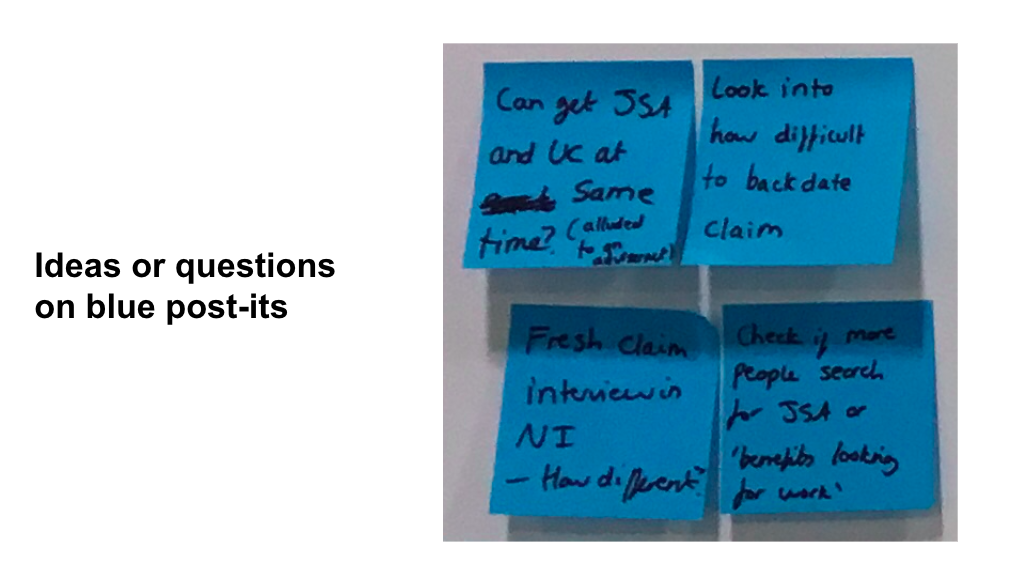 Ideas or questions
on blue post-its
Can get JSA
and UC at
Same
time? (alluded
to an
Look into
how difficult
to backdate
claim
Fresh claim
interview in
NI
– How different?
Check if more
people search
for JSA or
'benefits looking
for work'